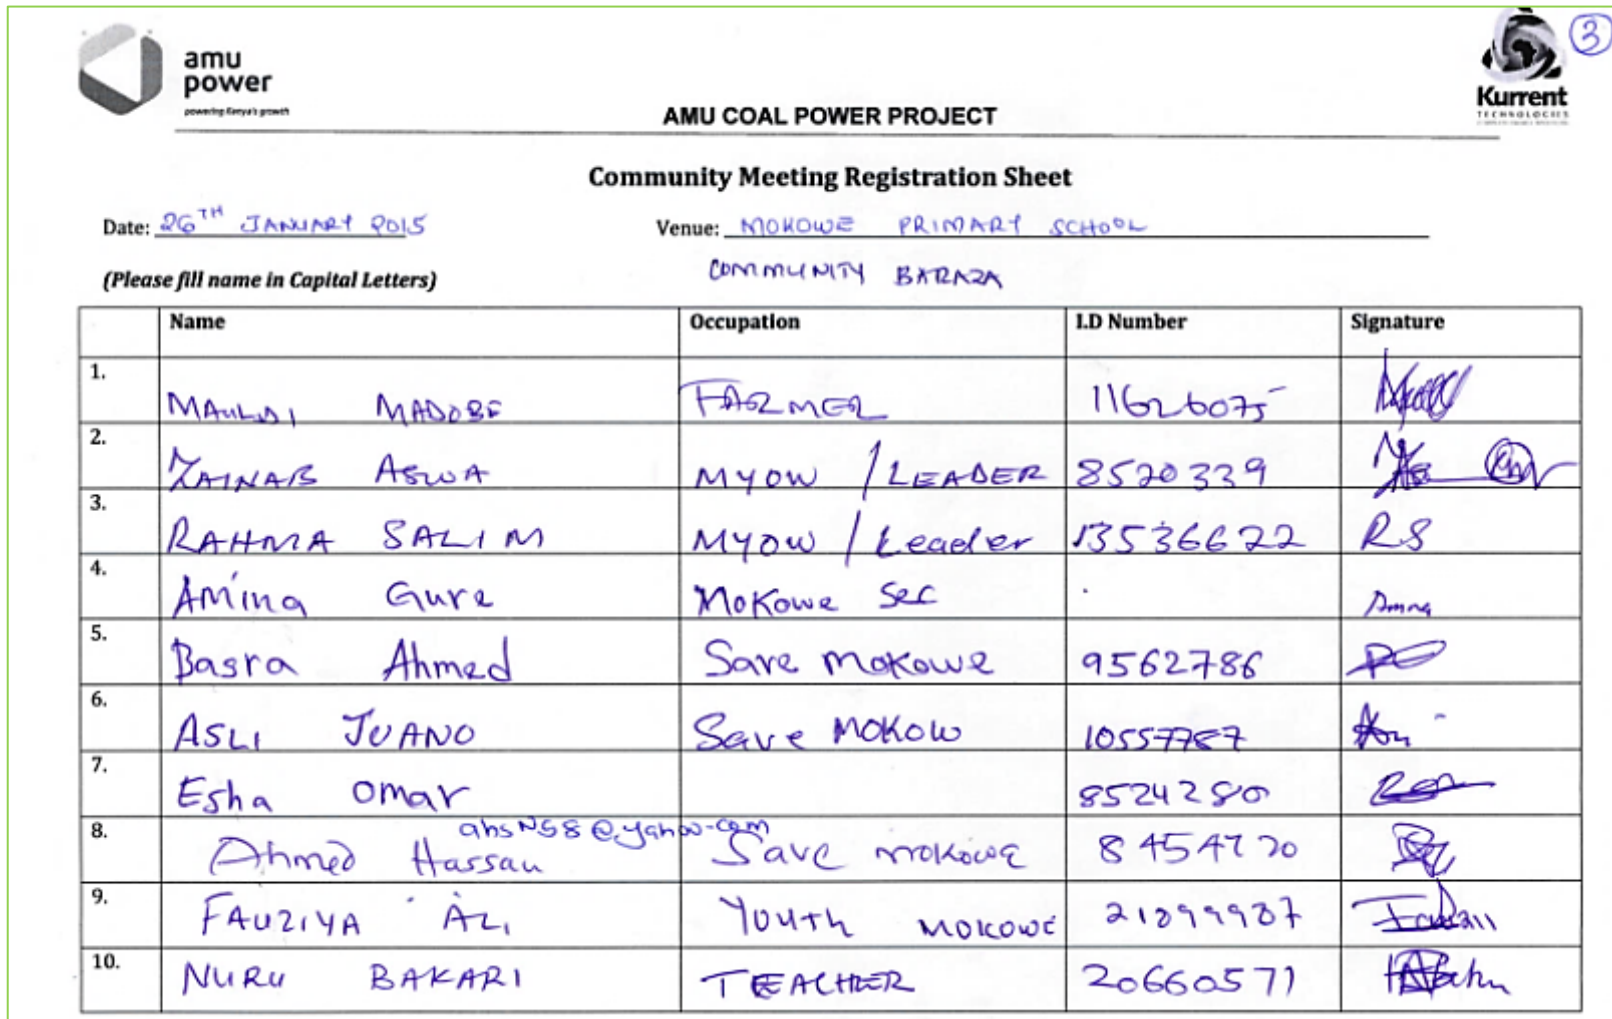 amu
power
powering Kenya's growth
3
Kurrent
TECHNOLOGIES
AMU COAL POWER PROJECT
Community Meeting Registration Sheet
Date: 26TH JANUARY 2015 Venue: MOKOWE PRIMARY SCHOOL
(Please fill name in Capital Letters) COMMUNITY BARAZA
Name Occupation I.D Number Signature
1. MAULDI MADOBE FARMER 11626075
2. ZAINAB ASWA MYOW / LEADER 8520339
3. RAHMA SALIM MYOW / Leader 13536622 RS
4. Amina Gure Mokowe Sec Amina
5. Basra Ahmed Save mokowe 9562786
6. ASLI JUANO Save MOKOW 10557787
7. Esha Omar 8524280
8. Ahmed Hassan ahsN58@yahoo.com Save mokowe 8454720
9. FAUZIYA ALI Youth MOKOWE 21899987
10. NURU BAKARI TEACHER 20660571